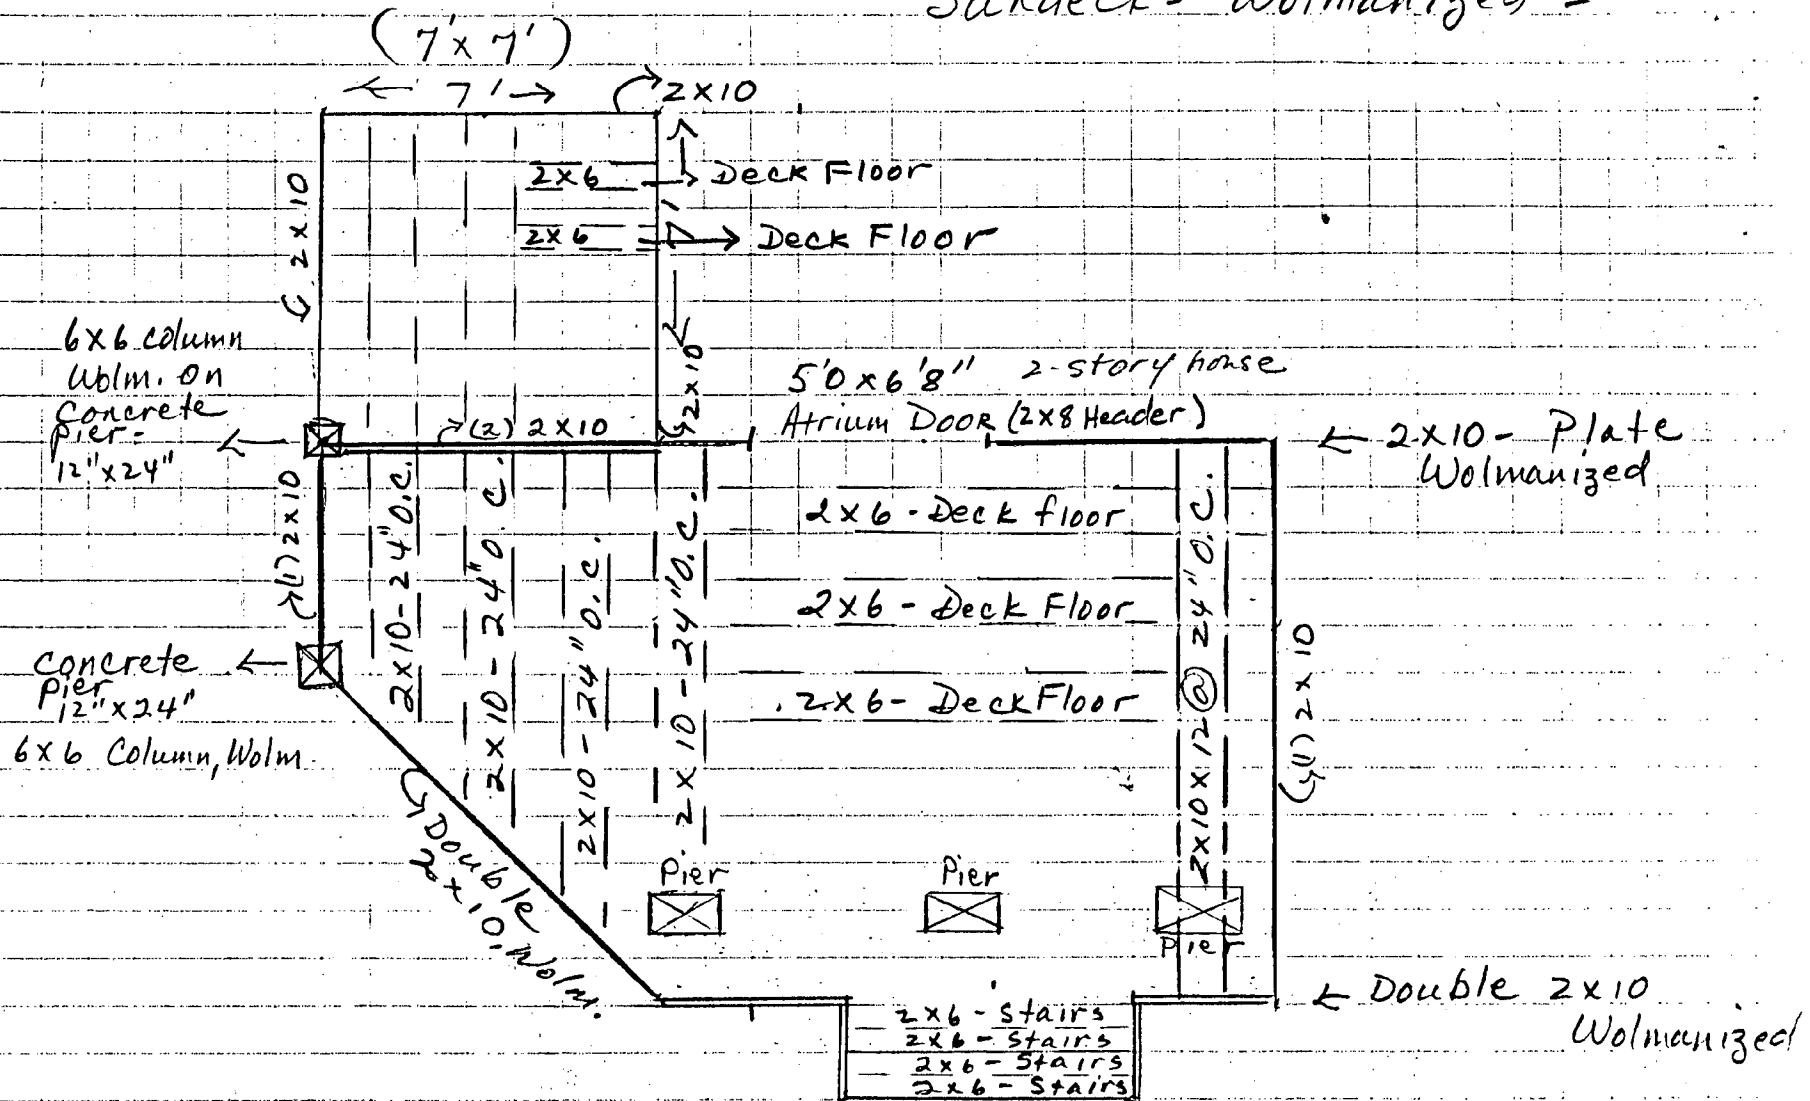 Sundeck - Wolmanized -
(7' x 7')
7'
2x10
2x10
2x6
Deck Floor
7'
2x6
Deck Floor
2x10
6x6 column
Wolm. On
Concrete
Pier -
12" x 24"
(2) 2x10
5'0 x 6'8" 2-story house
Atrium Door (2x8 Header)
2x10 - Plate
Wolmanized
(1) 2x10
2x10 - 24" O.C.
2x10 - 24" O.C.
2x10 - 24" O.C.
2x10 - 24" O.C.
2x6 - Deck floor
2x6 - Deck Floor
2x6 - Deck Floor
2x10x12 @ 24" O.C.
(1) 2x10
Concrete
Pier
12" x 24"
6x6 Column, Wolm.
Double
2x10, Wolm.
Pier
Pier
Pier
Double 2x10
Wolmanized
2x6 - Stairs
2x6 - Stairs
2x6 - Stairs
2x6 - Stairs